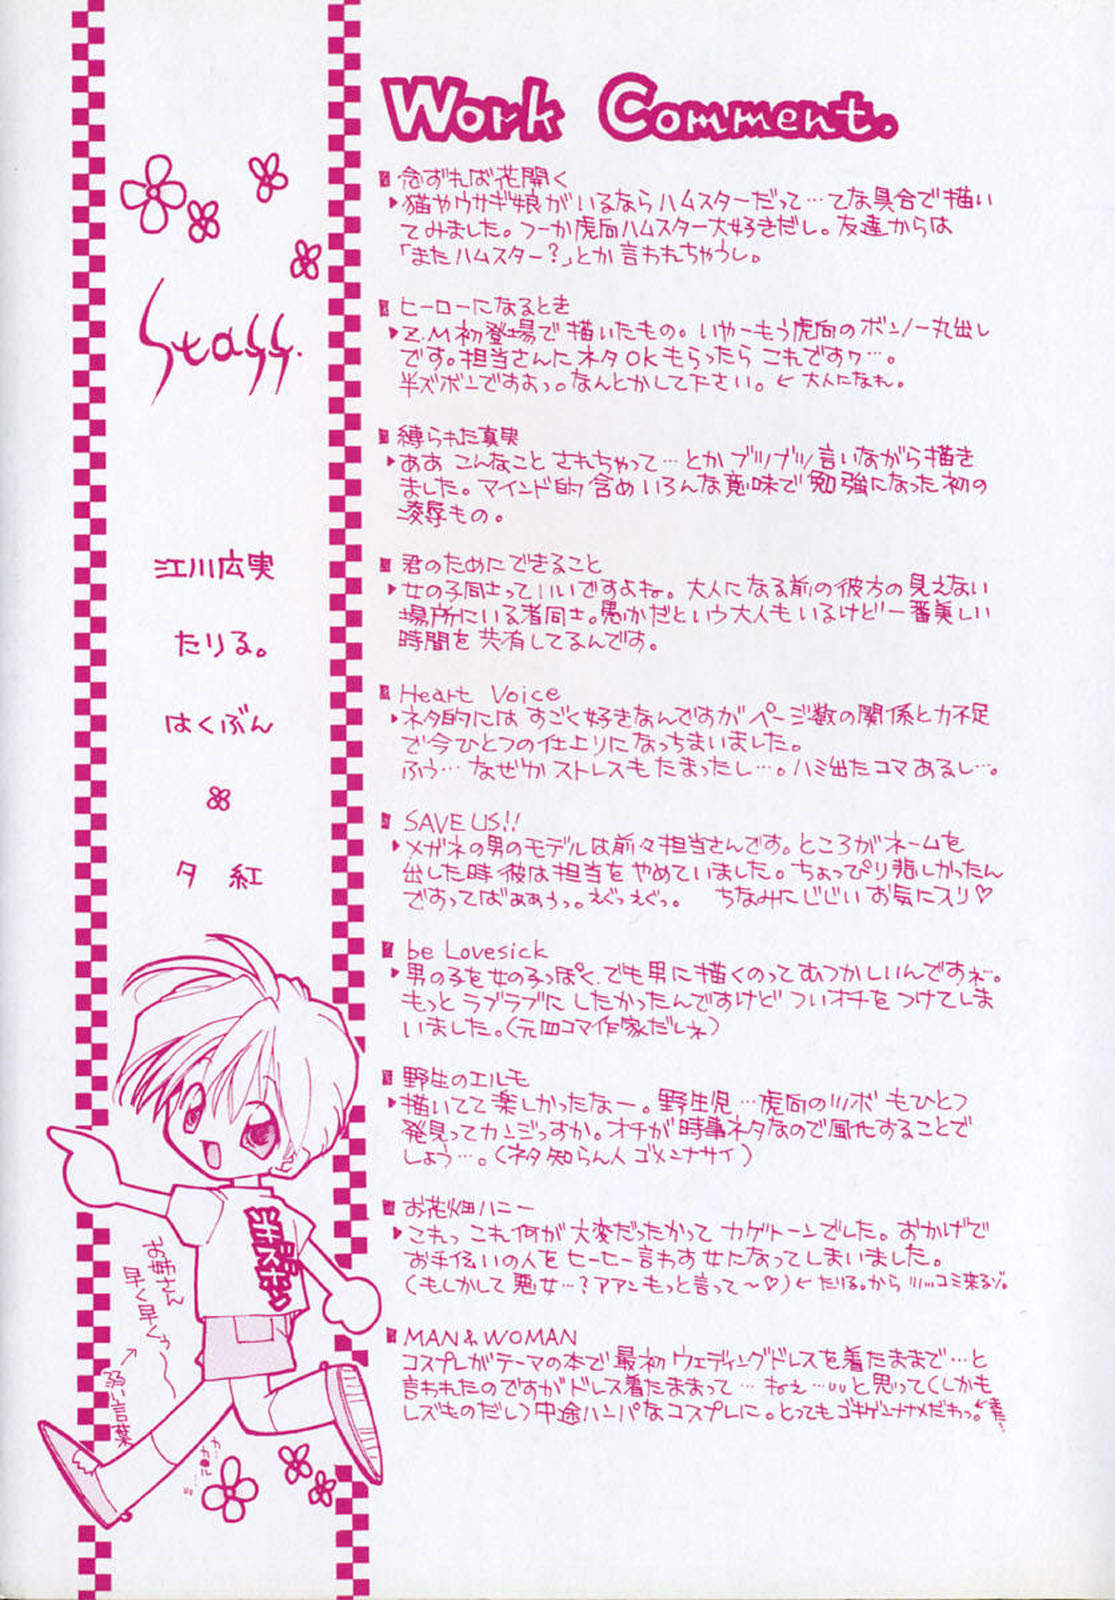 Work Comment.
念ずれば花開く
猫やウサギ娘がいるならハムスターだって…てな具合で描い
てみました。フーか虎向ハムスター大好きだし。友達からは
「またハムスター?」とか言われちゃうし。
ヒーローになるとき
Z.M初登場で描いたもの。いやーもう虎向のボンノー丸出し
です。担当さんにネタOKもらったらこれですヮ…。
半ズボンですよっ。なんとかして下さい。←大人になれ。
縛られた真実
ああ こんなこと されちゃって…とか ブツブツ言いながら描き
ました。マインド的含めいろんな意味で勉強になった初の
凌辱もの。
君のためにできること
女の子同士っていいですよね。大人になる前の彼方の見えない
場所にいる者同士。愚かだという大人もいるけど一番美しい
時間を共有してるんです。
Heart Voice
ネタ的にはすごく好きなんですがページ数の関係と力不足
で今ひとつの仕上りになっちまいました。
ふう…なぜかストレスもたまったし…。ハミ出たコマあるし…。
SAVE US!!
メガネの男のモデルは前々担当さんです。ところがネームを
出した時彼は担当をやめていました。ちょっぴり悲しかったん
ですってばぁぁぅっ。えぐっえぐっ。 ちなみにじじいお気にスリ♡
be Lovesick
男の子を女の子っぽく、でも男に描くのってむつかしいんですねー。
もっとラブラブにしたかったんですけどついオチをつけてしま
いました。(元四コマ作家だしネ)
野生のエルモ
描いてて楽しかったなー。野生児…虎向のツボもひとつ
発見ってカンジっすか。オチが時事ネタなので風化することで
しょう…。(ネタ知らん人ゴメンナサイ)
お花畑ハニー
これっ これ何が大変だったかって カゲトーンでした。おかげで
お手伝いの人をヒーヒー言わす女になってしまいました。
(もしかして悪女…?アアンもっと言って〜♡)←たりる。からツッコミ来るゾ。
MAN & WOMAN
コスプレがテーマの本で最初ウェディングドレスを着たままで…と
言われたのですがドレス着たままって…ねぇ…と思って(しかも
レズものだし)中途ハンパなコスプレに。とってもゴキゲンナナメだわっ。
Staff.
江川広実
たりる。
はくぶん
夕紅
半ズボン
お姉さん
早く早くぅ〜
弱い言葉